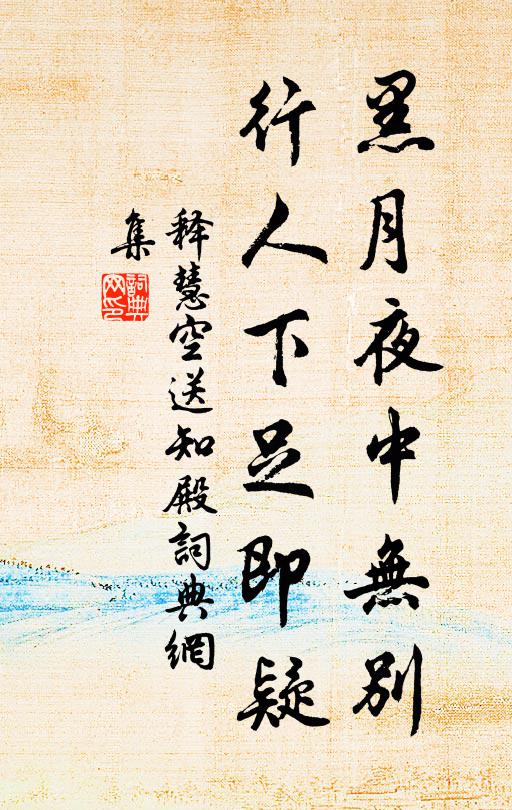 黑月夜中無別
行人下足即疑
釋慧空送知殿詞典網
集
詞典
网印